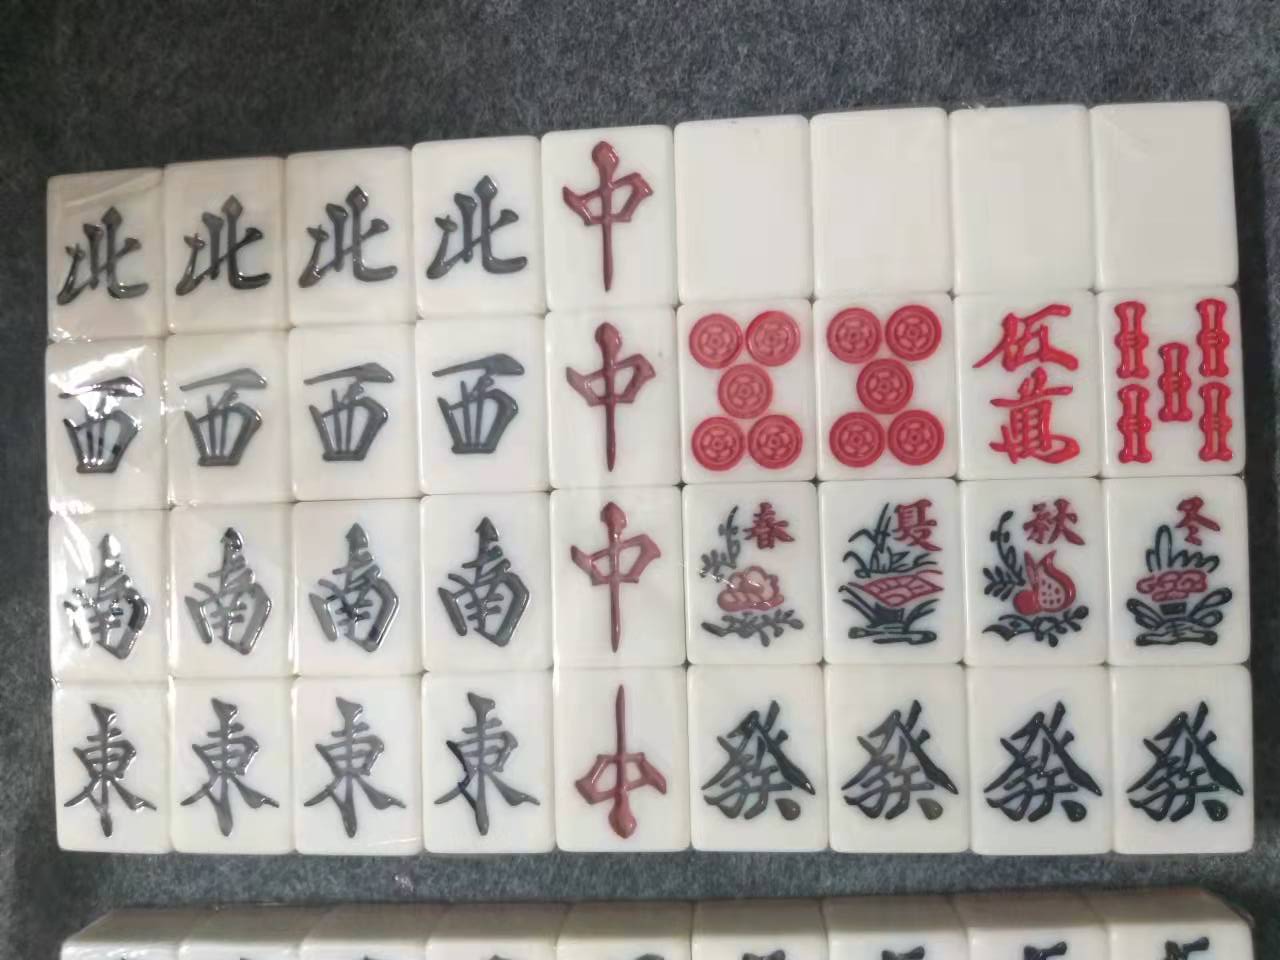 北 北 北 北 中
西 西 西 西 中 伍萬
南 南 南 南 中 春 夏 秋 冬
東 東 東 東 中 發 發 發 發